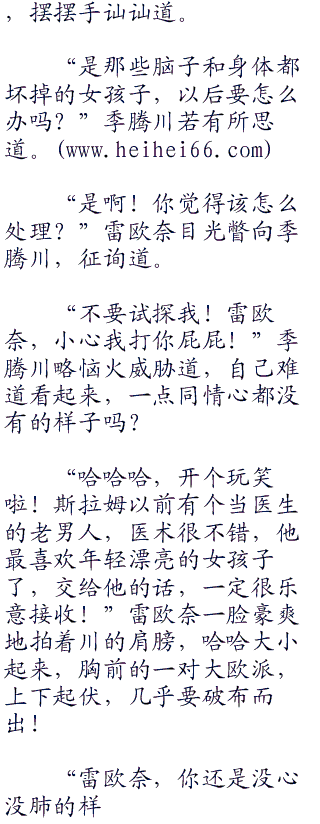 ，摆摆手讪讪道。
“是那些脑子和身体都
坏掉的女孩子，以后要怎么
办吗？”季腾川若有所思
道。(www.heihei66.com)
“是啊！你觉得该怎么
处理？”雷欧奈目光瞥向季
腾川，征询道。
“不要试探我！雷欧
奈，小心我打你屁屁！”季
腾川略恼火威胁道，自己难
道看起来，一点同情心都没
有的样子吗？
“哈哈哈，开个玩笑
啦！斯拉姆以前有个当医生
的老男人，医术很不错，他
最喜欢年轻漂亮的女孩子
了，交给他的话，一定很乐
意接收！”雷欧奈一脸豪爽
地拍着川的肩膀，哈哈大小
起来，胸前的一对大欧派，
上下起伏，几乎要破布而
出！
“雷欧奈，你还是没心
没肺的样